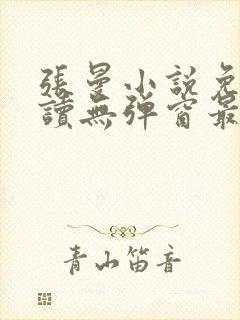 張曼小説免
讀無彈窗最
青山笛音